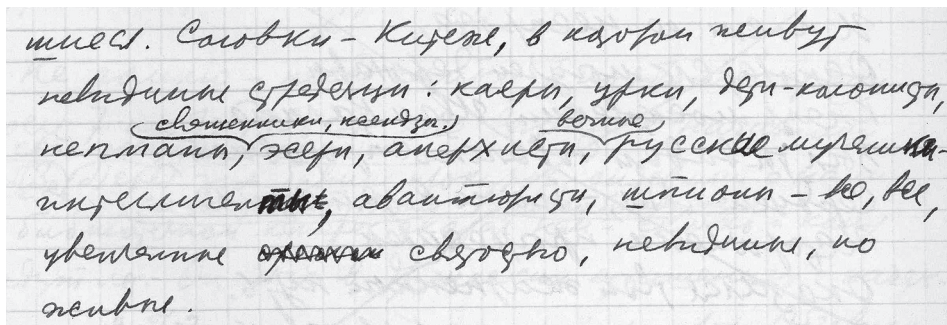 шиеся. Соловки – Китеж, в котором живут
невидимые : каеры, урки, дети-колонисты,
священники, ксендзы. вечные
непманы, эсеры, анархисты, русские мученики-
интеллигенты, авантюристы, шпионы – все, все,
увенчанные святостью, невидимые, но
живые.